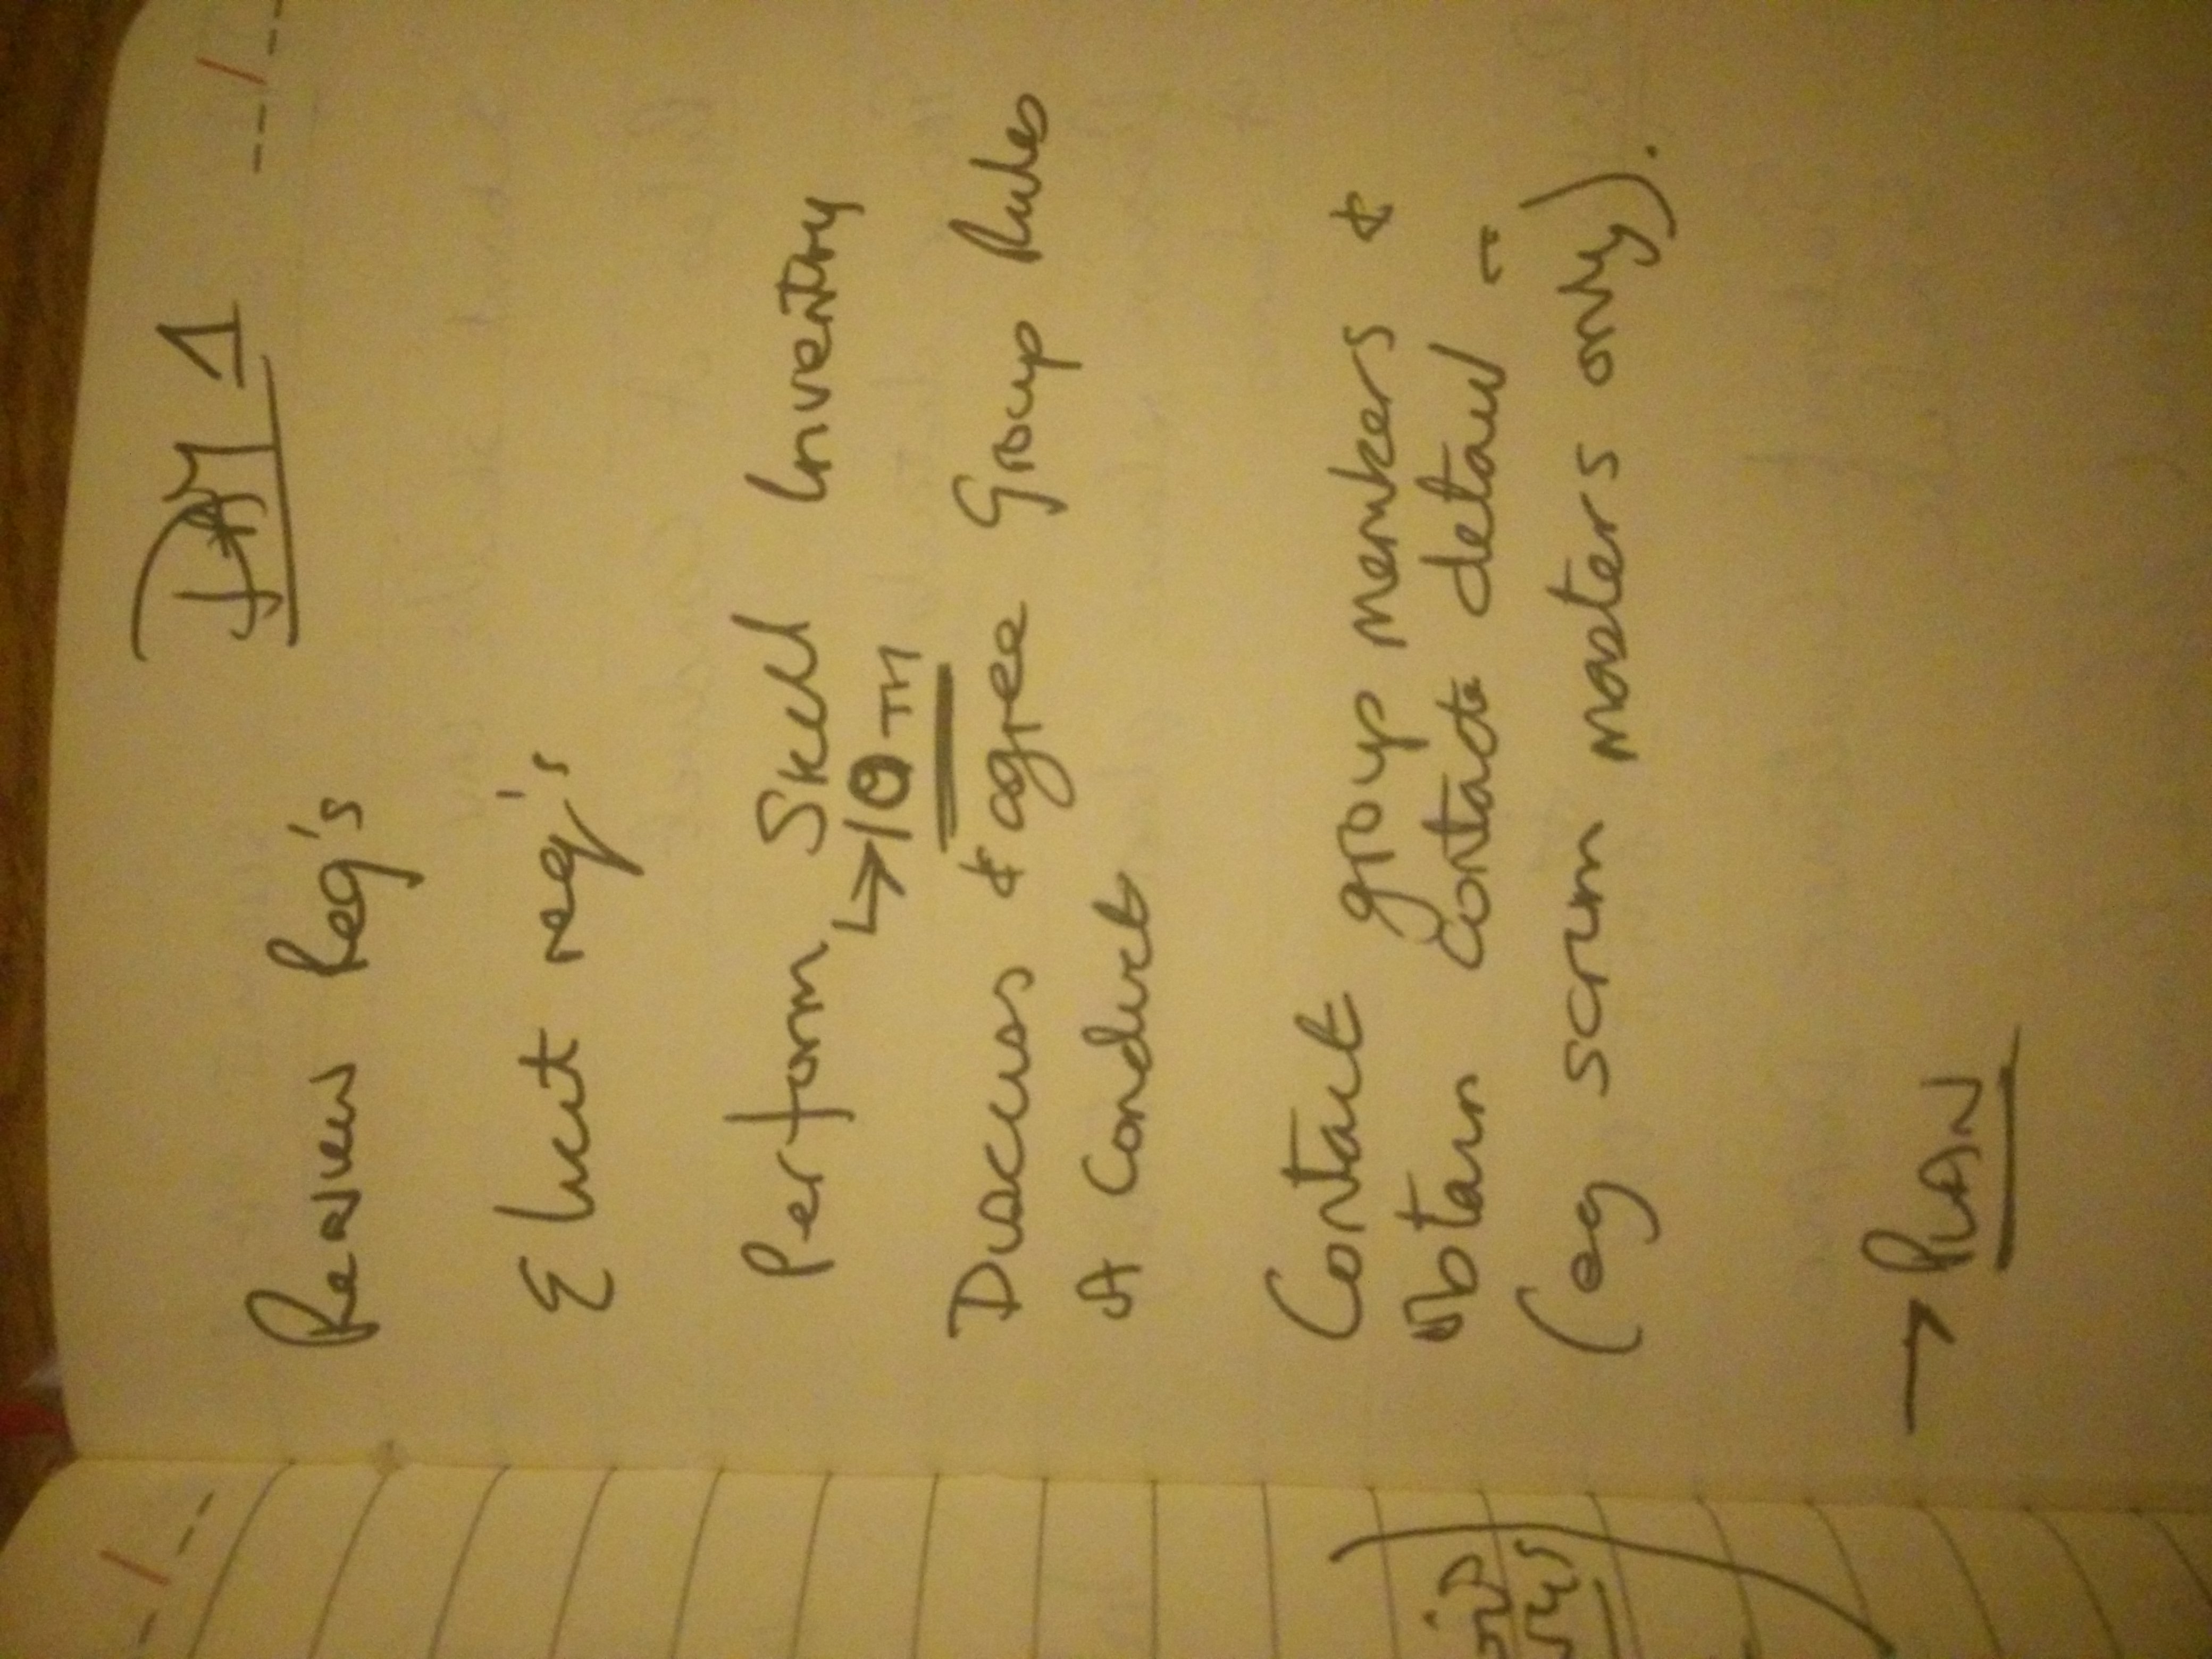 1
Review Req's
Elicit req's
Perform Skill Inventory
↳ 10TH
Discuss & agree Group Rules
& Conduct
Contact group members &
obtain contact detail -
(eg scrum masters only).
→ PLAN